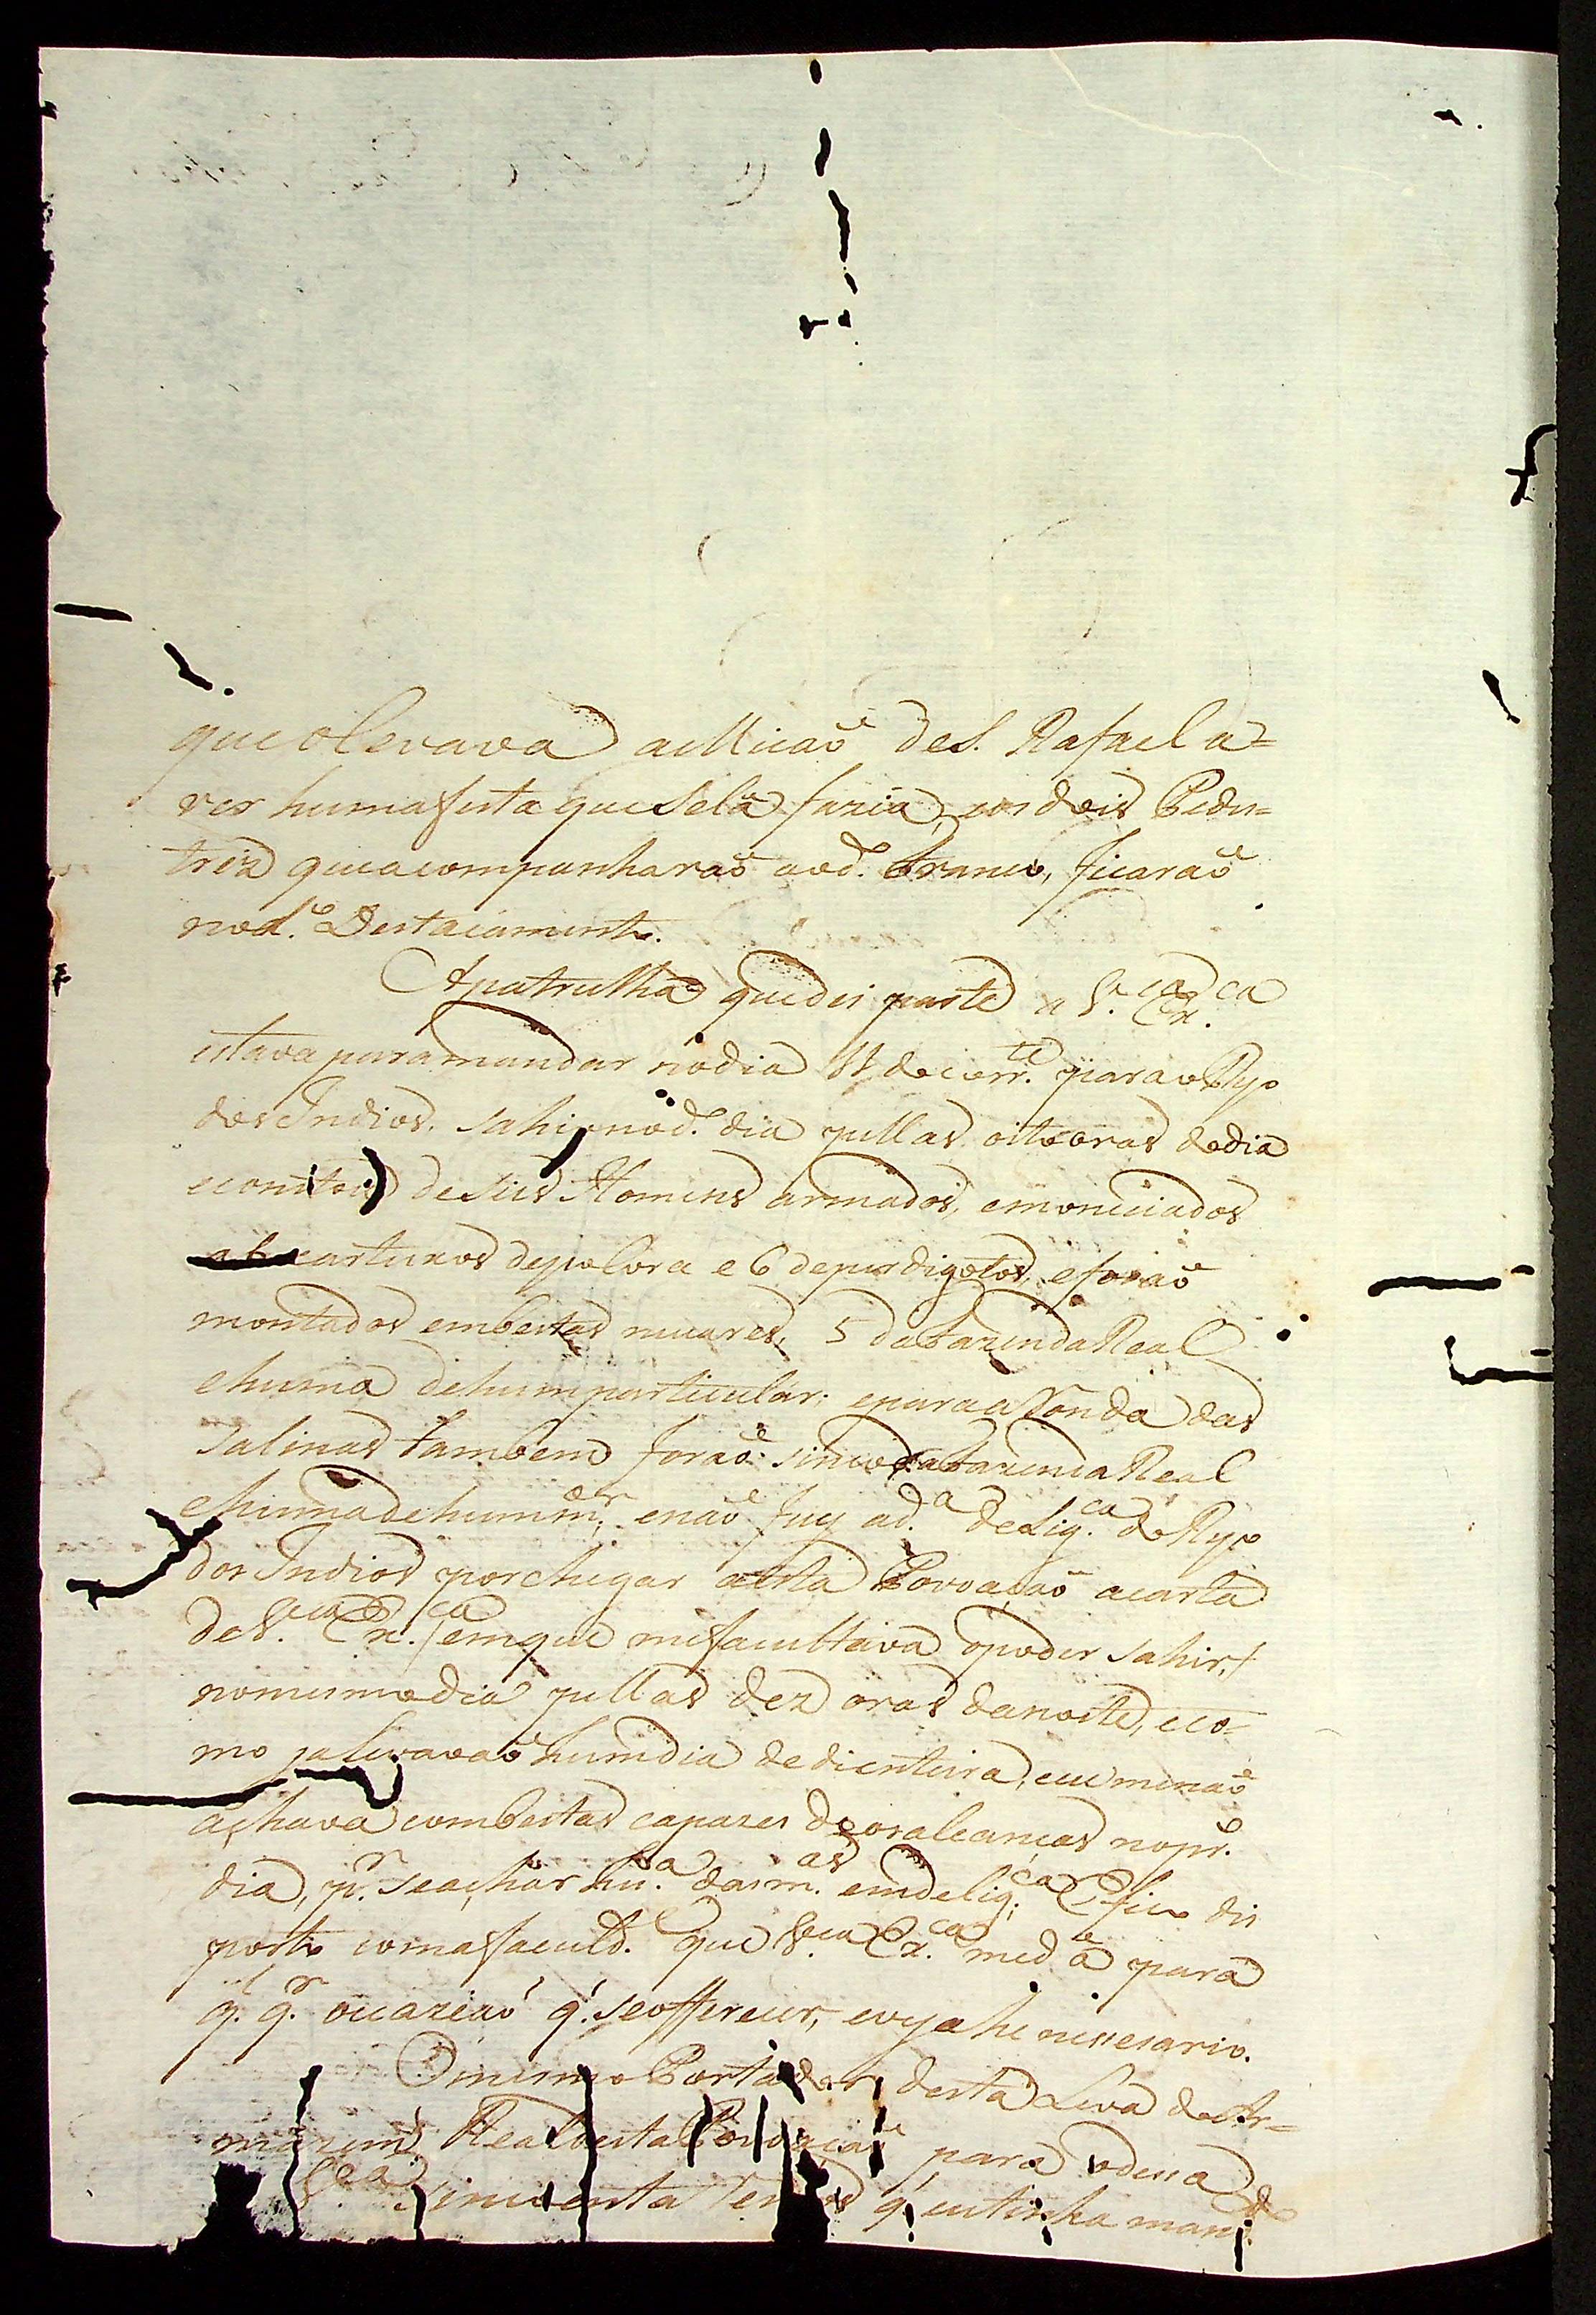 que o levava a Micaõ de S. Rafael a=
ver huma festa que se lá fazia, e os dois Pedes=
trez que acompanharaõ ao d.º Franco, ficaraõ
no d.º Destacamento.
A patrulha que dei parte a V.ª Ex.ca
estava para mandar no dia 11 do corr.te para o Ryo
dos Indios, sahi no d.º dia pellas oito oras do dia
e constou de seis Homens armados, e moniciados
a 6 cartuxos de polvora e 6 de perdigotos, e foraõ
montados em bestas muares, 5 da Fazenda Real
e huma de hum particular; e para a Ronda das
Salinas tambem foraõ sinco da Fazenda Real
e huma de hum m.or; e naõ fuy a d.ª delig.ca do Ryo
dos Indios por chegar a esta Povoaçaõ a carta
de V.ª Ex.ca / em que me facultava o poder sahir, /
no mesmo dia pellas dez oras da noite, e co-
mo ja levavaõ hum dia de dienteira, e eu me naõ
achava com bestas capazes de os alcancar no pr.º
dia, p.r se achar hu.ª das m.as em delig.ca Eu fico dis
posto com a faculd.e que V.ª Ex.ca me dá para
q.l q.r occazíaó q' se offerecer, e vya he nessesario.
O mesmo Portador desta Leva do Ar=
mazem Real desta Povoaçaõ para o dessa
V.ª sincoenta q' eu tinha mand.do